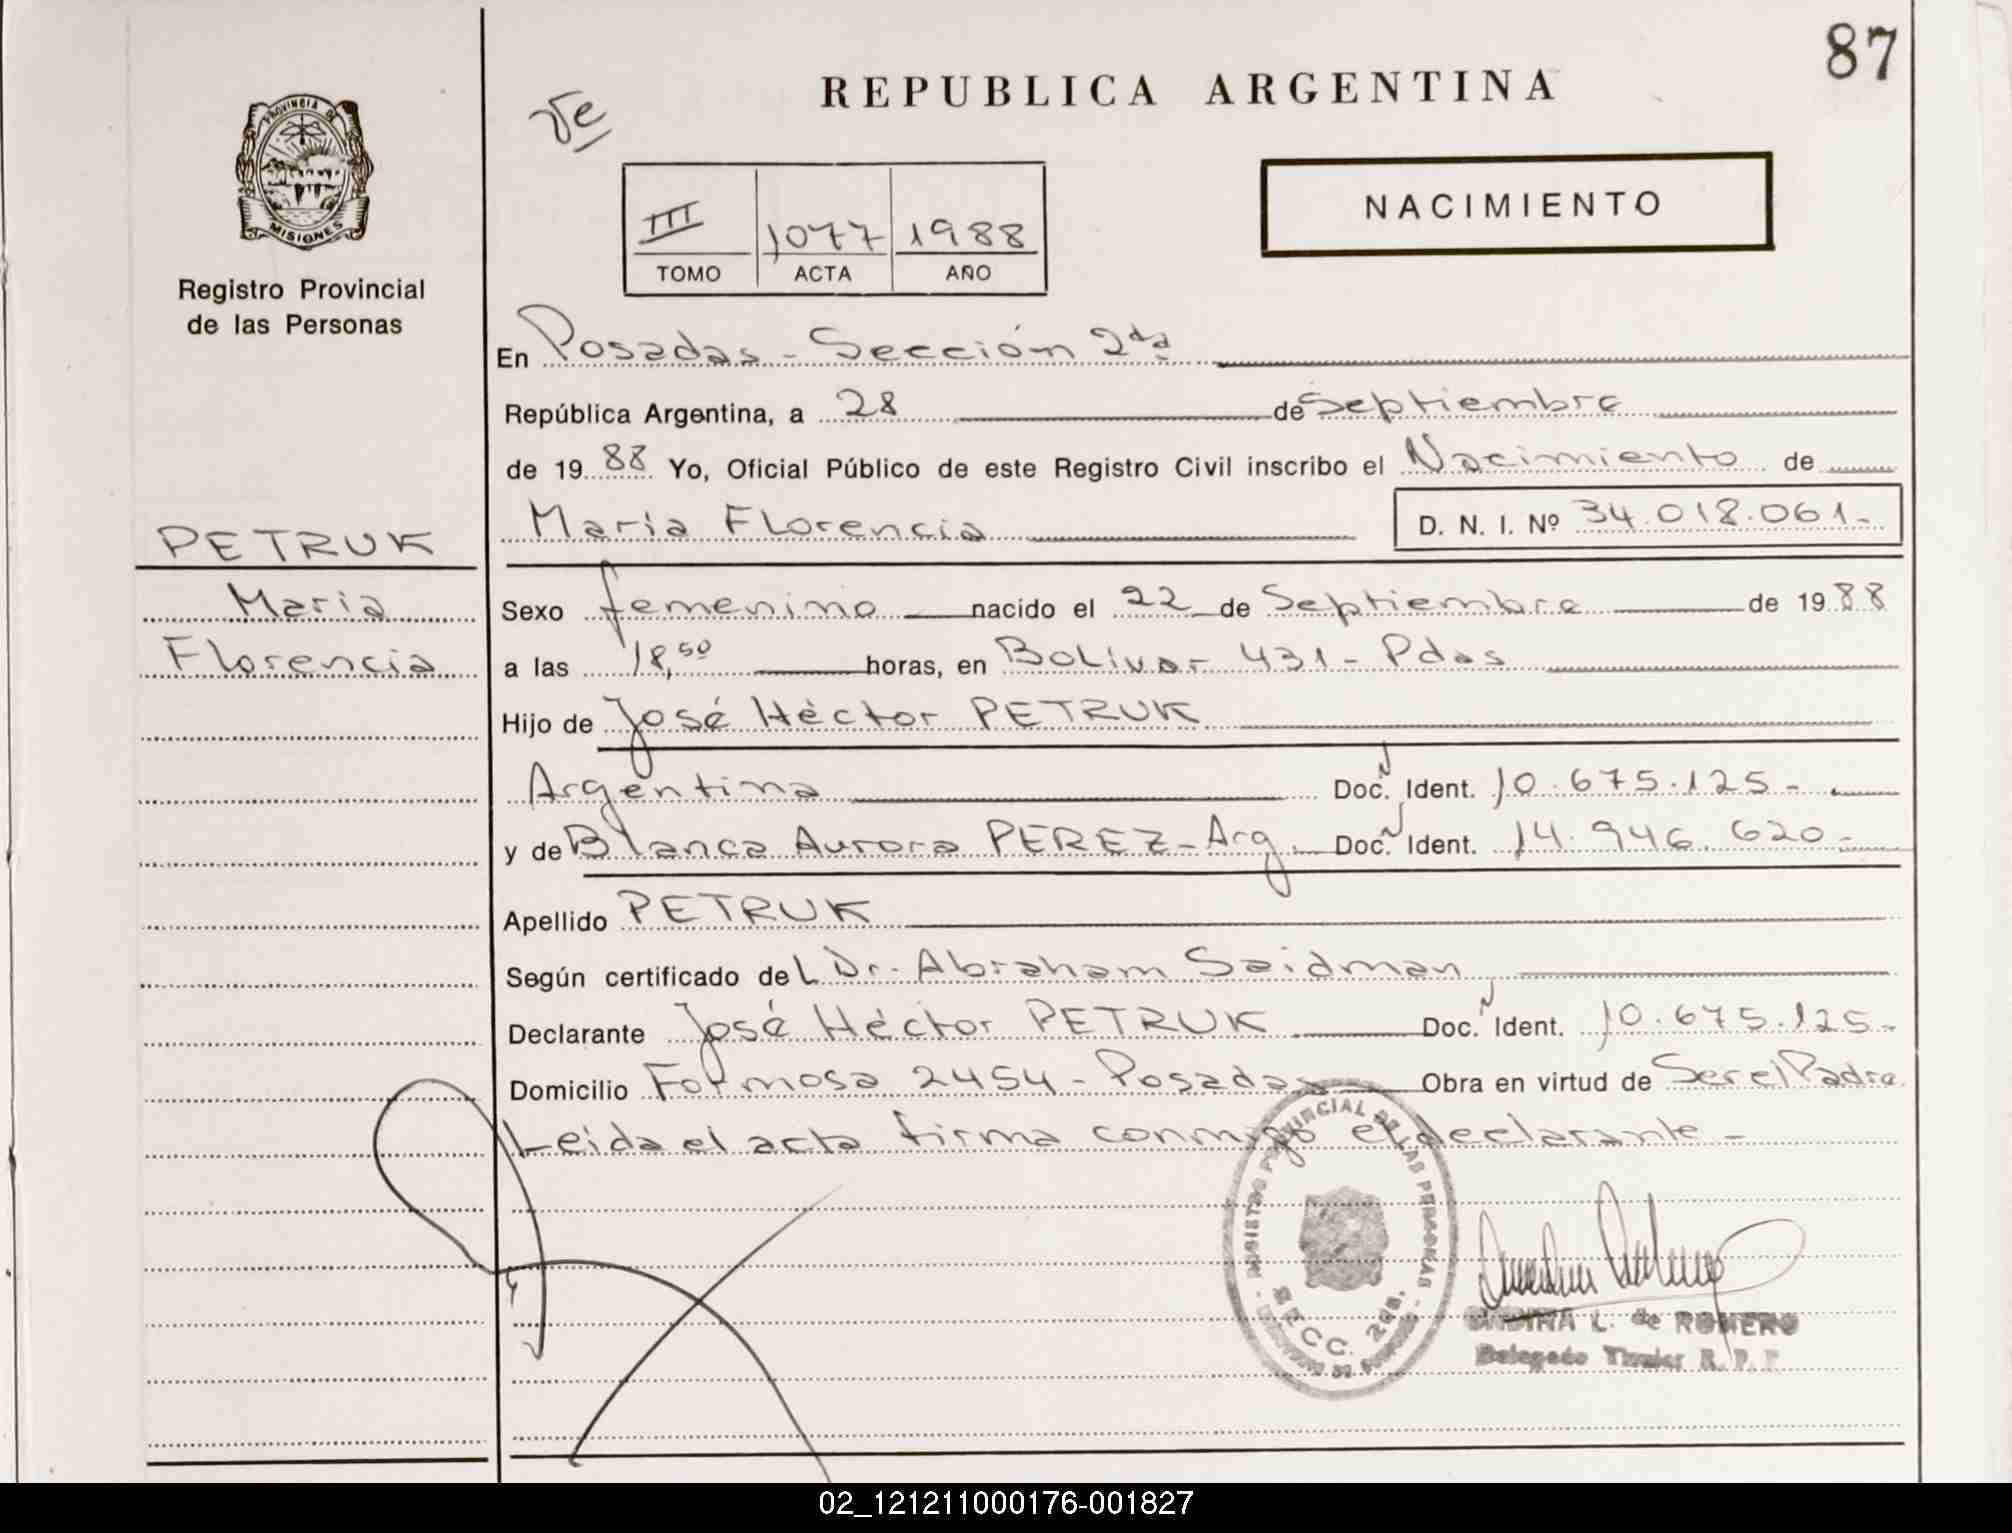 87
REPUBLICA ARGENTINA
PROVINCIA DE
MISIONES
Registro Provincial
de las Personas
NACIMIENTO
III 1077 1988
TOMO ACTA AÑO
En Posadas - Sección 2da
República Argentina, a 28 de Septiembre
de 1988 Yo, Oficial Público de este Registro Civil inscribo el Nacimiento de
María Florencia D. N. I. Nº 34.018.061.-
PETRUK
María
Florencia
Sexo femenino nacido el 22 de Septiembre de 1988
a las 18,50 horas, en Bolívar 431 - Pdas
Hijo de José Héctor PETRUK
Argentina Doc. Ident. 10.675.125 -
y de Blanca Aurora PEREZ - Arg. Doc. Ident. 14.946.620 -
Apellido PETRUK
Según certificado del Dr. Abraham Saidman
Declarante José Héctor PETRUK Doc. Ident. 10.675.125 -
Domicilio Formosa 2454 - Posadas Obra en virtud de Ser el Padre
Leida el acta firma conmigo el declarante -
REGISTRO PROVINCIAL DE LAS PERSONAS
SECC. 2da.
L. de ROMERO
Delegado Titular R. P. P.
02_121211000176-001827